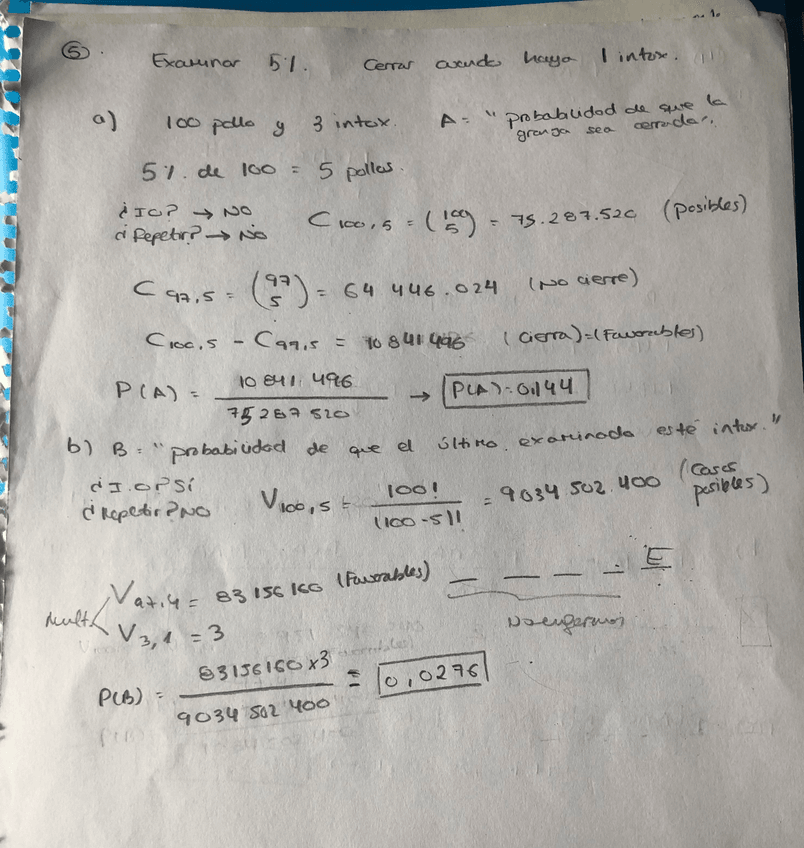 ⑤. Examinar 5%. Cerrar cuando haya 1 intox.
a) 100 pollo y 3 intox. A = "probabilidad de que la granja sea cerrada".
5%. de 100 = 5 pollos.
¿IO? → NO
¿Repetir? → NO
C100,5 = (100 5) = 75.287.520 (posibles)
C97,5 = (97 5) = 64 446.024 (No cierre)
C100,5 - C97,5 = 10 841 496 (cierra)=(Favorables)
P(A) = 10 841 496 / 75 287 520 → P(A)=0,144
b) B = "probabilidad de que el último examinado esté intox."
¿I.O? SÍ
¿Repetir? NO
V100,5 = 100! / (100-5)! = 9034 502.400 (Casos posibles)
V97,4 = 83 156 160 (Favorables) _ _ _ _ E
Mult. V3,1 = 3 No enfermos
P(B) = 83156160 x3 / 9034 502 400 = 0,0276